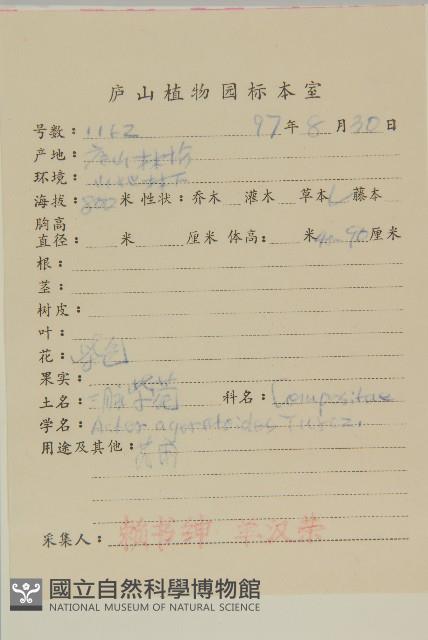 庐山植物园标本室
号数: 1162 97年8月30日
产地: 庐山
环境: 山地林下
海拔: 800米 性状: 乔木 灌木 草本✓藤本
胸高
直径: 米 厘米 体高: 米 40-90厘米
根:
茎:
树皮:
叶:
花: 紫色
果实:
土名: 三脉紫菀 科名: Compositae
学名: Aster ageratoides Turcz.
用途及其他:
采集人: 赖书绅 单汉荣
國立自然科學博物館
NATIONAL MUSEUM OF NATURAL SCIENCE